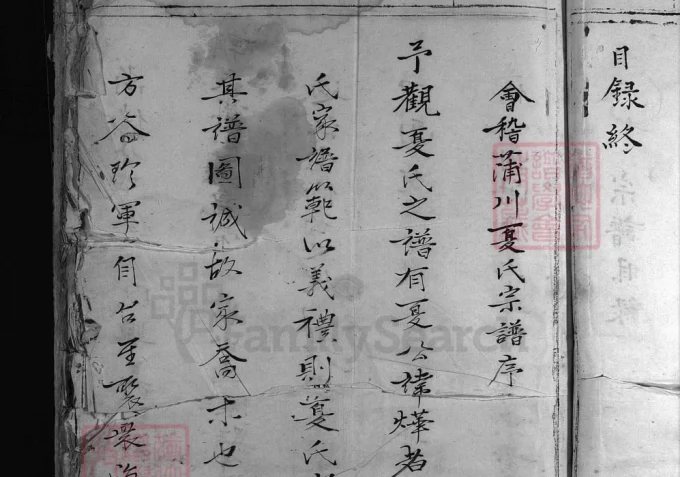 目録終
會稽蒲川夏氏宗譜序
予觀夏氏之譜有夏公諱燁者
氏家譜以範以義禮則夏氏
其譜圖誠故家喬木也
方谷珍軍自台至
FamilySearch